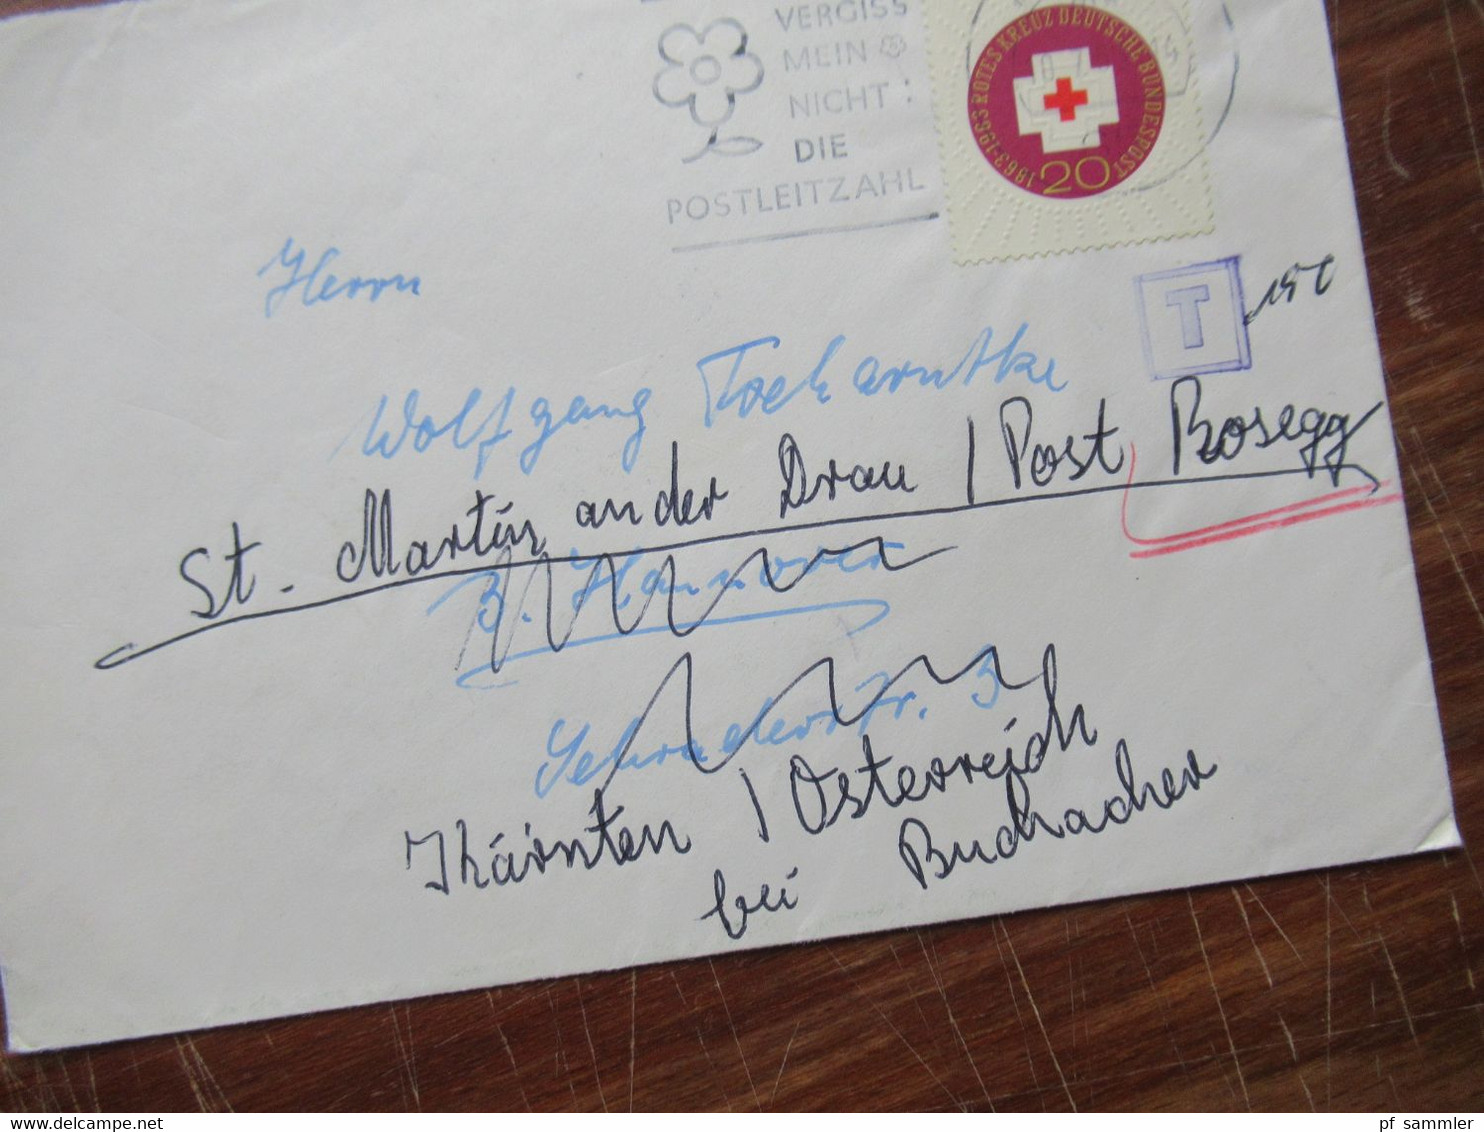 VERGISS
MEIN
NICHT!
DIE
POSTLEITZAHL
1863-1963 ROTES KREUZ DEUTSCHE BUNDESPOST
20
T
Herrn
Wolfgang
St. Martin an der Drau / Post Rosegg
3. Hannover
Schraderstr. 3
Kärnten / Österreich
bei Buchacher
© www.delcampe.net
pf sammler